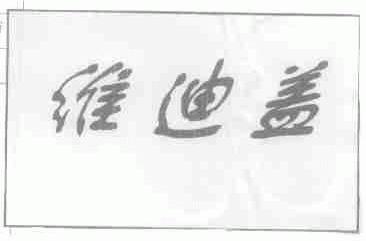 维迪盖